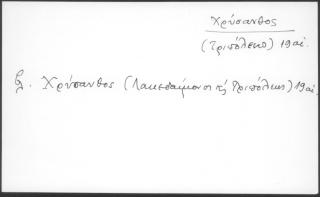 Χρύσανθος
(Τριπόλεως) 19 αἰ.
βλ. Χρύσανθος (Λακεδαίμονος καὶ Τριπόλεως) 19 αἰ.